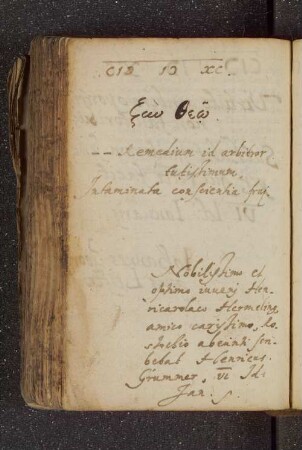 CIƆ IƆ XC.
ξεω Θεῷ
-- Remedium id arbitror
tutissimum
Intaminata conscientia frui.
Nobilissimo et
optimo iuveni Hen-
rico Hermeling
amico carissimo, Ro-
stochio abeunti scri-
bebat Henricus
Grummer, VI Id:
Jan.